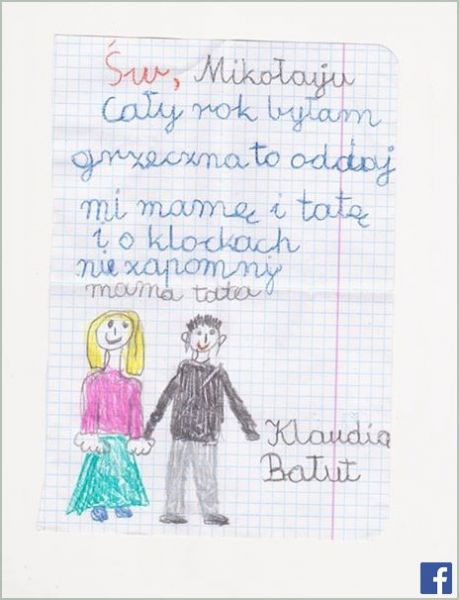 Św, Mikołaju
Cały rok byłam
grzeczna to oddaj
mi mamę i tatę
i o klockach
nie zapomnij
mama tata
Klaudia
Bałut
f